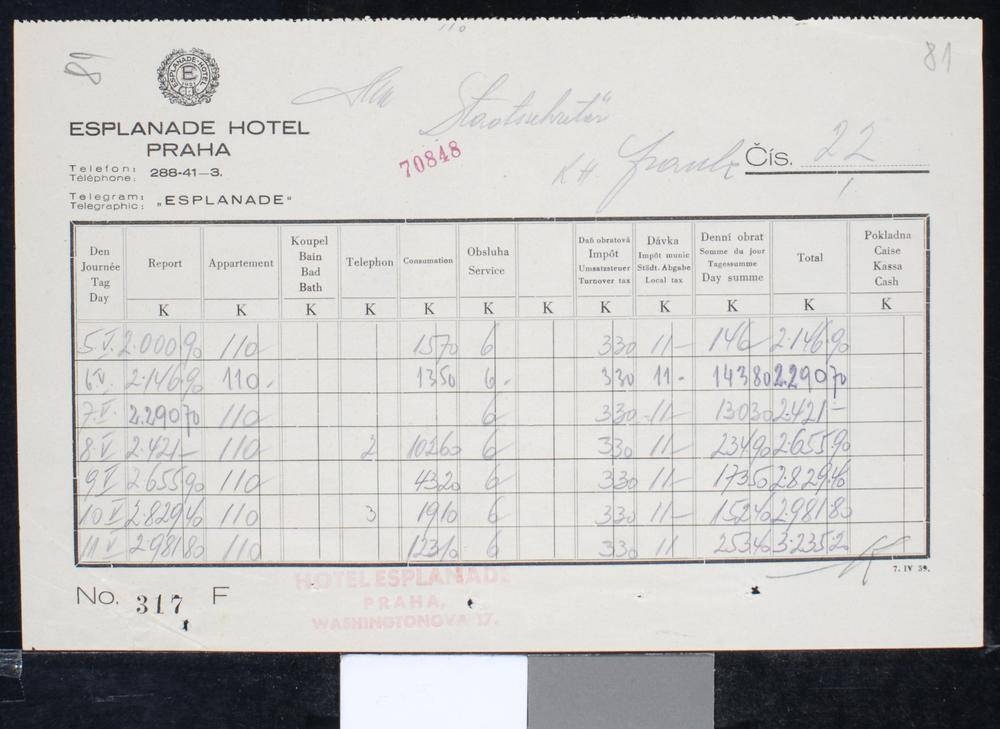 81
81
ESPLANADE HOTEL
E
1931
ESPLANADE HOTEL
PRAHA
Telefon:
Téléphone: 288-41—3.
Telegram:
Telegraphic: „ESPLANADE"
Staatssekretär
70848
KH Frank
Čís. 22
Den Journée Tag Day | Report | Appartement | Koupel Bain Bad Bath | Telephon | Consumation | Obsluha Service | | Daň obratová Impôt Umsatzsteuer Turnover tax | Dávka Impôt munic Städt. Abgabe Local tax | Denní obrat Somme du jour Tagessumme Day summe | Total | Pokladna Caise Kassa Cash
K K K K K K K K K K K K
5.V. 2.000 90 110 15 70 6 3 30 11- 146 2.146 90
6.V. 2.146 90 110.- 13 50 6.- 3 30 11.- 143 80 2.290 70
7.V. 2.290 70 110 6 3 30 11- 130 30 2.421-
8.V 2.421- 110 2 102 60 6 3 30 11- 234 90 2.655 90
9.V 2.655 90 110 43 20 6 3 30 11- 173 50 2.829 40
10 V 2.829 40 110 3 19 10 6 3 30 11- 152 40 2.981 80
11 V 2.981 80 110 123 10 6 3 30 11 253 40 3.235 20
7. IV 39.
No. 317 F
HOTEL ESPLANADE
PRAHA,
WASHINGTONOVA 17.